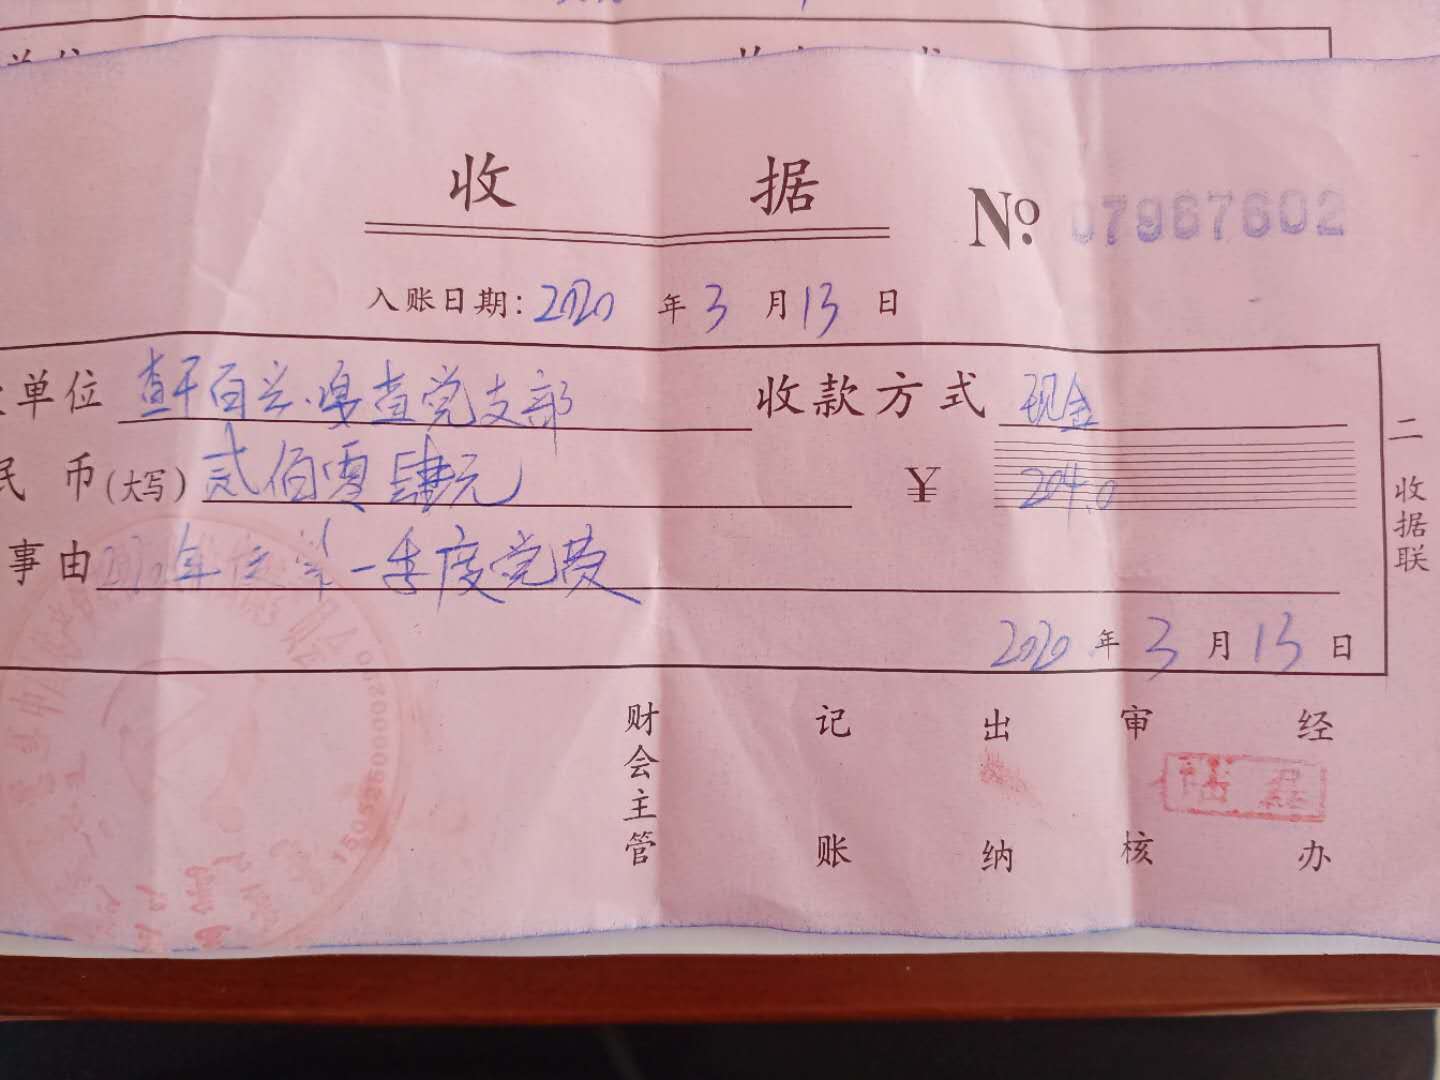 收据 № 07967602
入账日期：2020年3月13日
单位 查干百兴嘎查党支部 收款方式 现金
民币（大写）贰佰零肆元 ¥ 204.0
事由 2020年 第一季度党费
2020年3月13日
二 收据联
财会主管 记账 出纳 审核 经办
陆磊